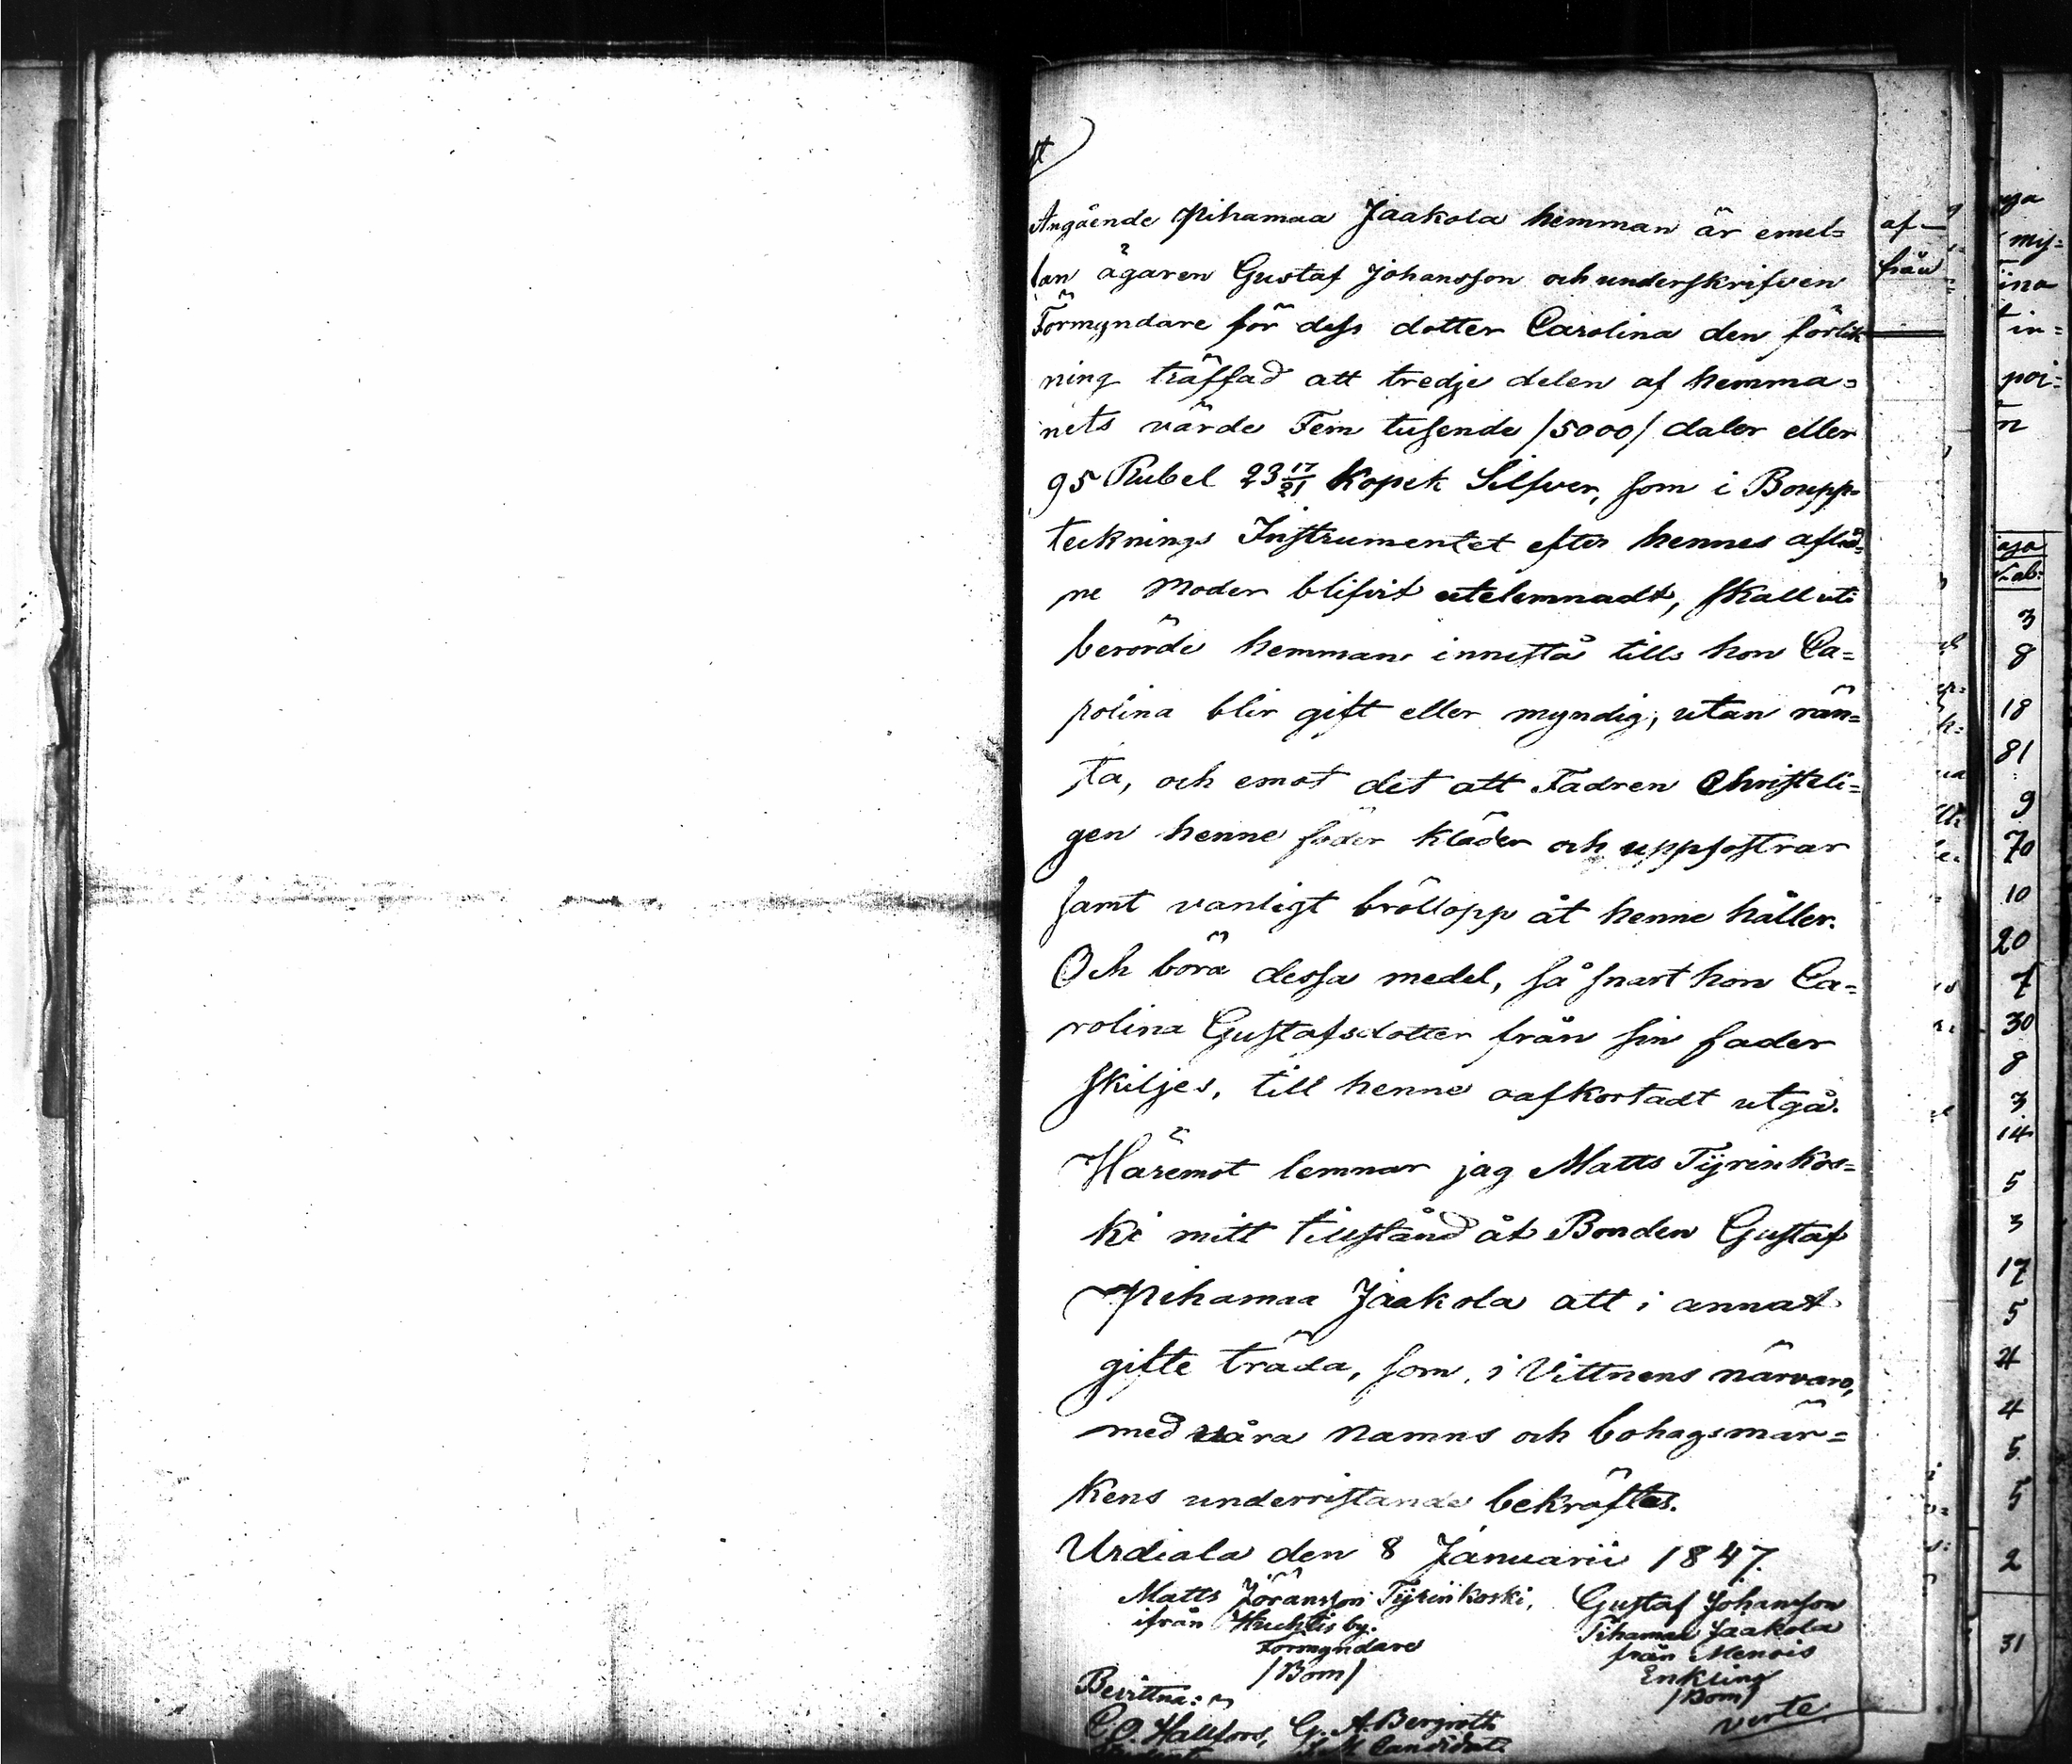 st
Angående Pihamaa Jaakola hemman är emel=
lan ägaren Gustaf Johansson och underskrifven
Förmyndare för dess dotter Carolina den förlik
ning träffad att tredje delen af hemma=
nets värde Fem tusende /5000/ daler eller
95 Rubel 23 17/21 Kopek Silfver, som i Boupp=
tecknings Instrumentet efter hennes aflid=
ne Moder blifvit utelemnadt, skall uti
berörde hemman innestå tills hon Ca=
rolina blir gift eller myndig, utan rän=
ta, och emot det att Fadren Christeli=
gen henne föder kläder och uppfostrar
samt vanligt bröllopp åt henne håller.
Och böra dessa medel, så snart hon Ca=
rolina Gustafsdotter från sin fader
skiljes, till henne oafkortadt utgå.
Häremot lemnar jag Matts Tyrinkos=
ki mitt tillstånd åt Bonden Gustaf
Pihamaa Jaakola att i annat
gifte träda, som, i Vittnens närvaro,
med våra namns och bohagsmär=
kens underristande bekräftas.
Urdiala den 8 Januarii 1847.
Matts Jöransson Tyrinkoski, Gustaf Johansson
ifrån Huchtis by. Pihamaa Jaakola
Förmyndare från Menois
/Bom/ Enkling
/Bom/
Bevittna: verte
C. O. Hallfors, G. A. Bergroth
Candidat.
af
från
my=
ina
in=
poi=
n
3
8
18
81
9
70
10
20
7
30
8
3
14
5
3
17
5
4
4
5
5
2
31